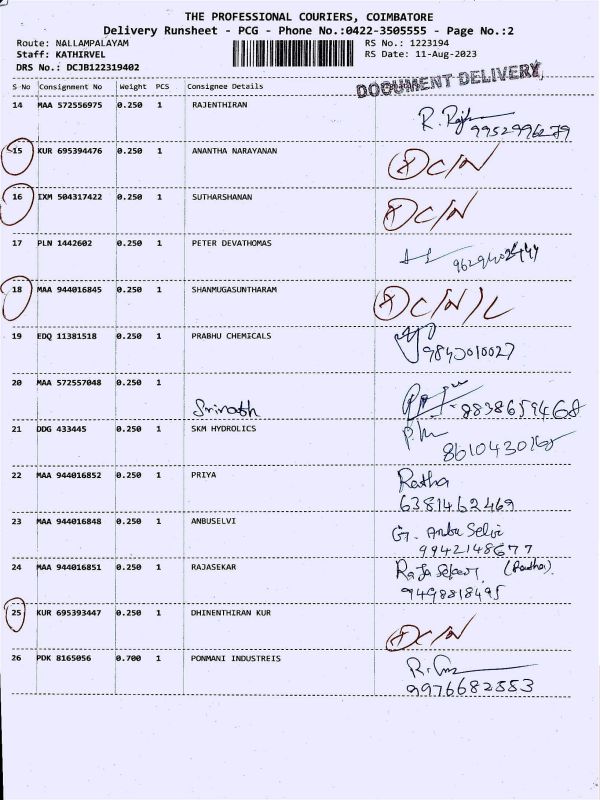 THE PROFESSIONAL COURIERS, COIMBATORE
Delivery Runsheet - PCG - Phone No.:0422-3505555 - Page No.:2
Route: NALLAMPALAYAM RS No.: 1223194
Staff: KATHIRVEL RS Date: 11-Aug-2023
DRS No.: DCJB122319402
DOCUMENT DELIVERY
S No Consignment No Weight PCS Consignee Details
14 MAA 572556975 0.250 1 RAJENTHIRAN
9952996279
15 KUR 695394476 0.250 1 ANANTHA NARAYANAN
DC/N
16 IXM 504317422 0.250 1 SUTHARSHANAN
DC/N
17 PLN 1442602 0.250 1 PETER DEVATHOMAS
18 MAA 944016845 0.250 1 SHANMUGASUNTHARAM
DC/N/L
19 EDQ 11381518 0.250 1 PRABHU CHEMICALS
9843010027
20 MAA 572557048 0.250 1
Srinath 8838659468
21 DDG 433445 0.250 1 SKM HYDROLICS
22 MAA 944016852 0.250 1 PRIYA Ratha
6381462469
23 MAA 944016848 0.250 1 ANBUSELVI G. Anbu Selvi
9942148677
24 MAA 944016851 0.250 1 RAJASEKAR
9498818495
25 KUR 695393447 0.250 1 DHINENTHIRAN KUR
DC/N
26 PDK 8165056 0.700 1 PONMANI INDUSTREIS
9976682553